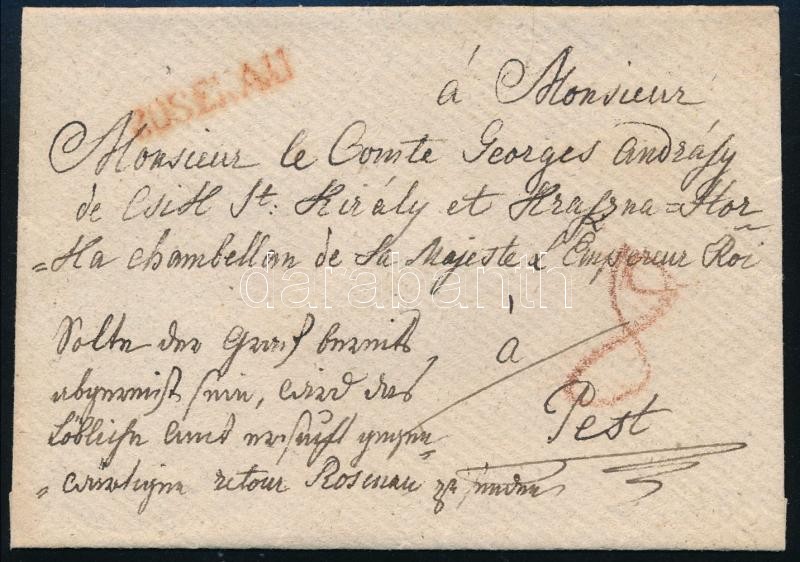 ROSENAU
á Monsieur
Monsieur le Comte Georges Andráſy
de Csik St: Király et Kraſzna=Hor=
=Ka chambellan de Sa Majeste L'Empereur Roi
à
Pest
8
Solte der Graf bereits
abgereist sein, wird das
Löbliche Amt ersucht gegen=
=wärtigen retour Rosenau zu senden
darabanth